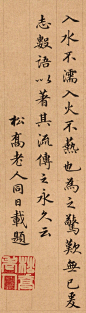 入水不濡入火不爇也為之驚歎無已爰
志數語以著其流傳之永久云
松喬老人同日載題